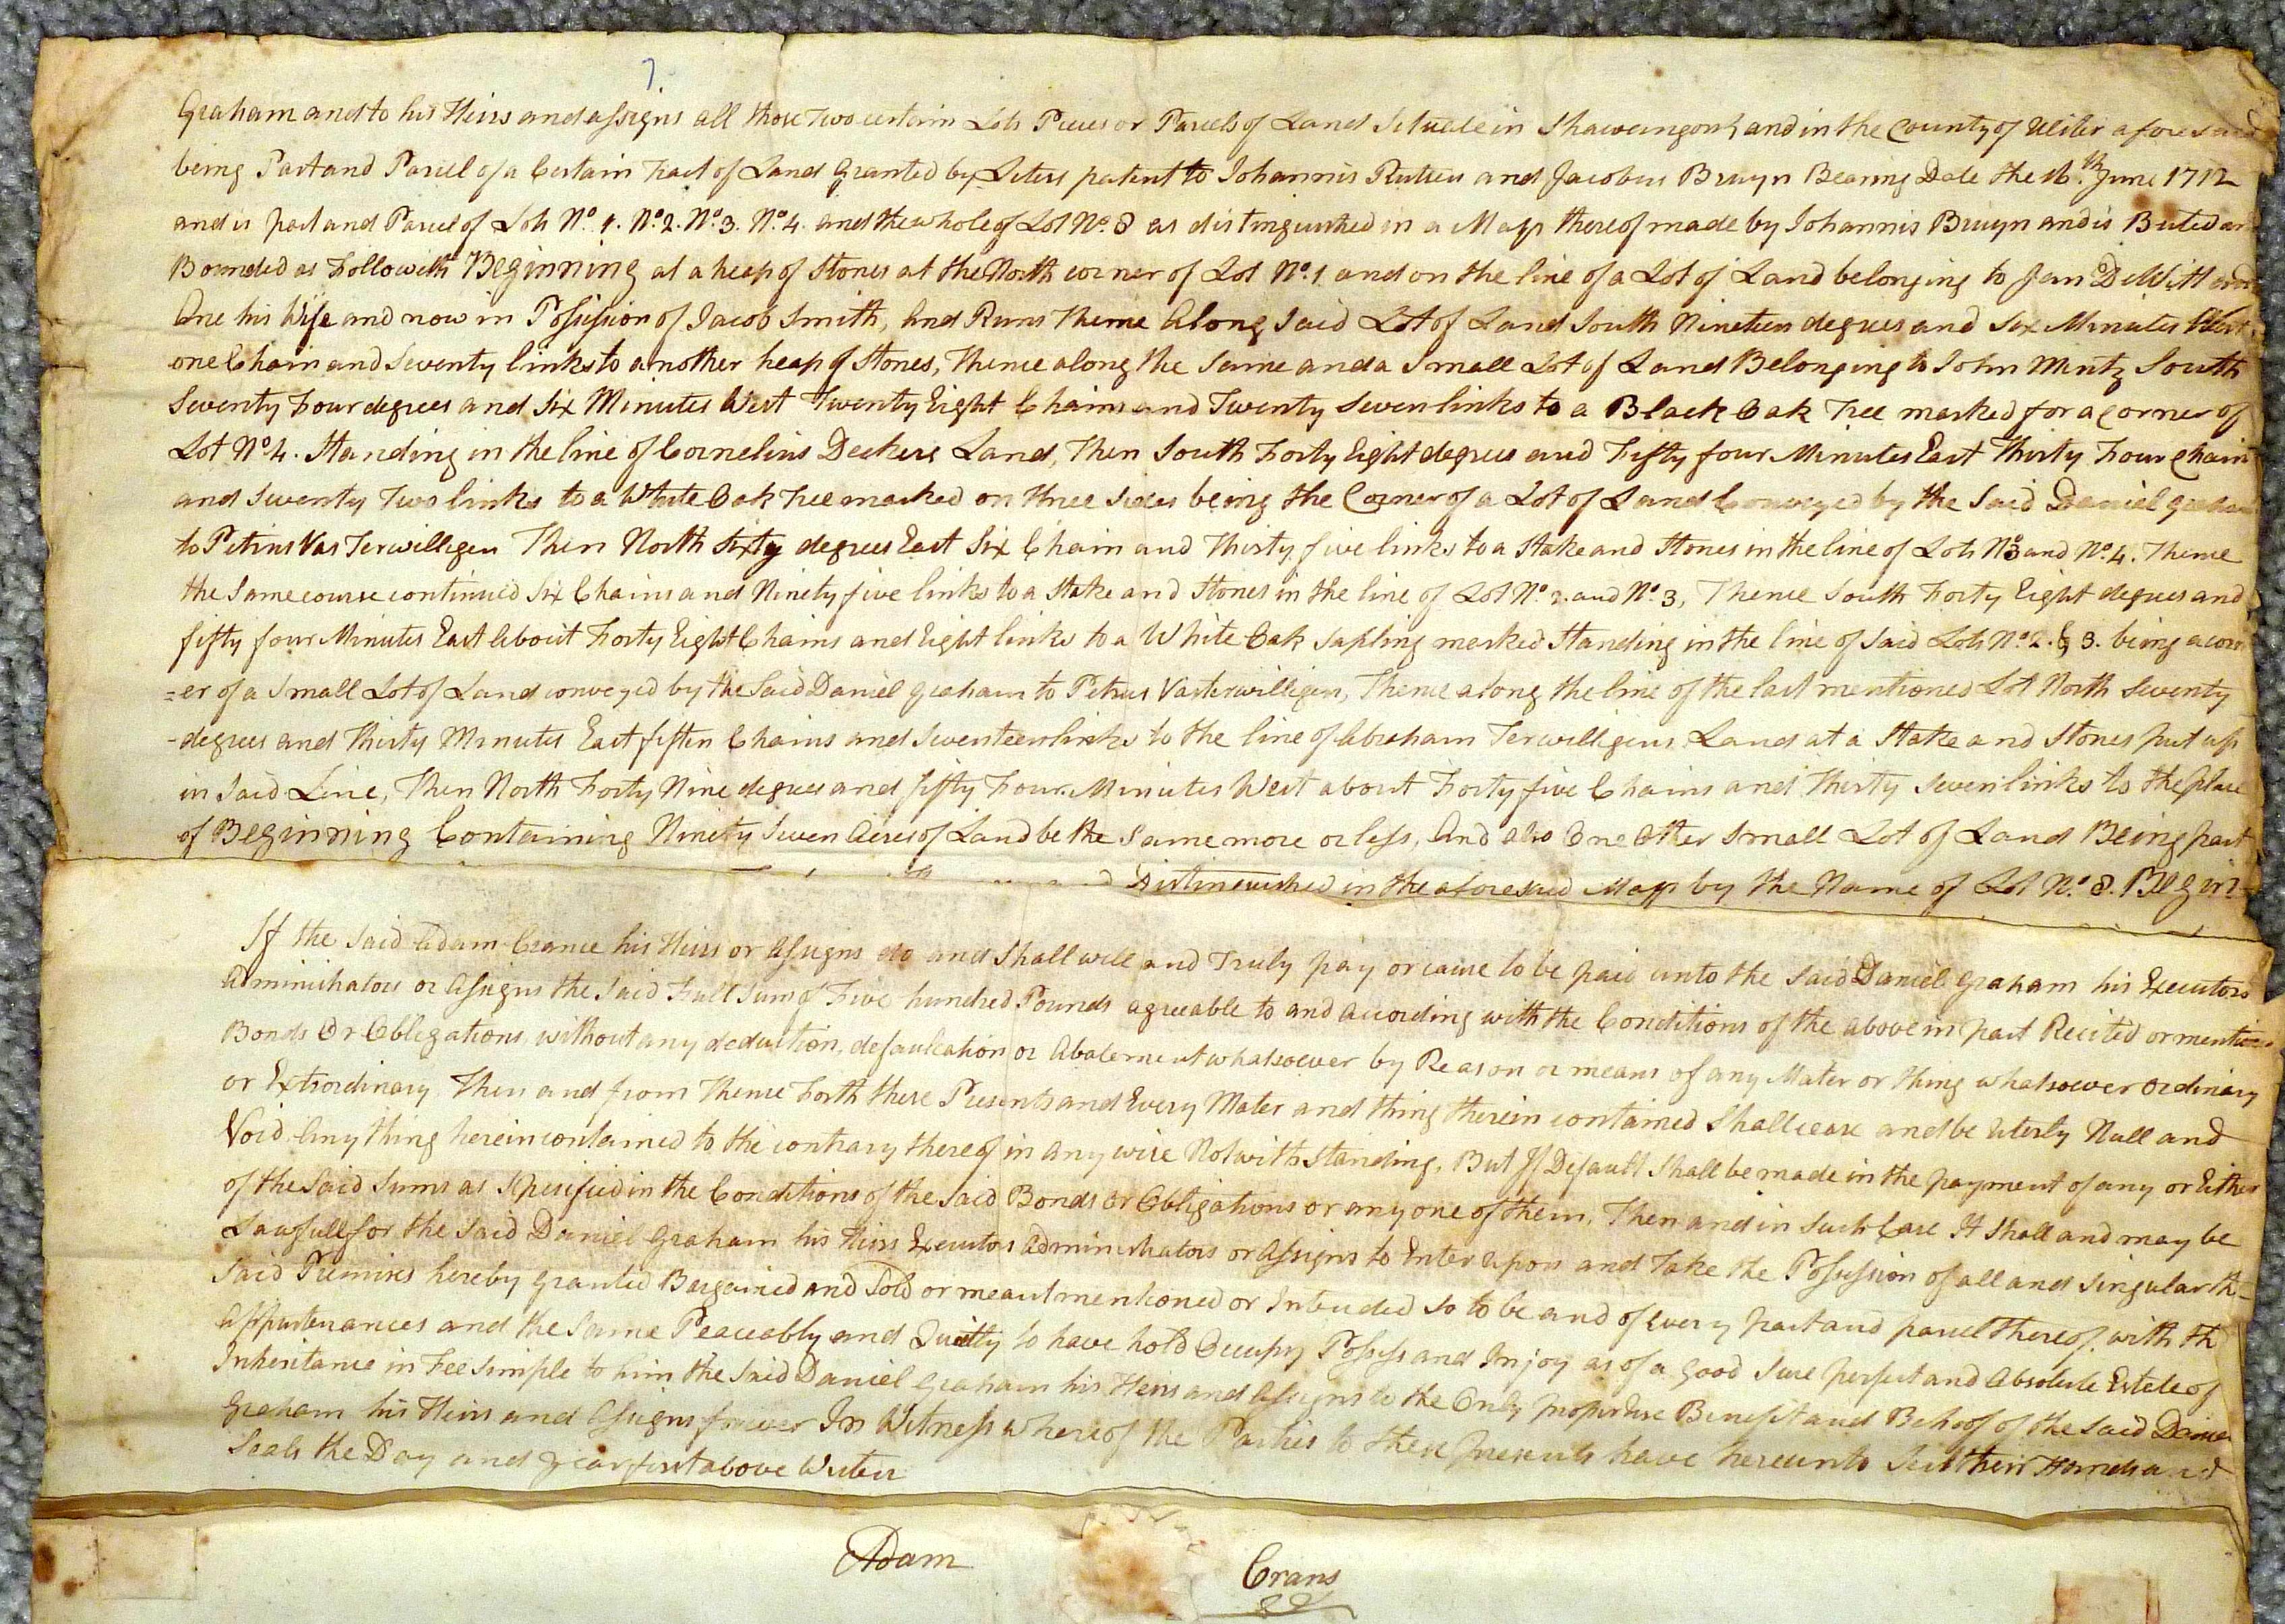 7
Graham and to his Heirs and assigns all those Two certain Lots Pieces or Parcels of Land Situate in Shawangonk and in the County of Ulster aforesaid
being Part and Parcel of a Certain Tract of Land Granted by Leters patent to Johannis Rutsen and Jacobus Bruyn Bearing Date the 16th June 1712
and is part and Parcel of Lots No. 1. No. 2. No. 3. No. 4. and the whole of Lot No. 8 as distinguished in a Map thereof made by Johannis Bruyn and is Buted an
Bounded as Followeth Beginning at a heap of Stones at the North corner of Lot No. 1 and on the line of a Lot of Land belonging to Jan DeWitt and
Ane his Wife and now in Possession of Jacob Smith, And Runs Thence Along Said Lot of Land South Nineteen degrees and Six Minutes West
one Chain and Seventy links to another heap of Stones, Thence along the Same and a Small Lot of Land Belonging to John Mintz South
Seventy Four degrees and Six Minutes West Twenty Eight Chains and Twenty Seven links to a Black Oak Tree marked for a corner of
Lot No. 4. Standing in the line of Cornelius Deckers Land, Then South Forty Eight degrees and Fifty four Minutes East Thirty Four Chain
and Seventy Two links to a White Oak Tree marked on three Sides being the Corner of a Lot of Land Conveyed by the Said Daniel Graham
to Petrus Vas Terwilligen Then North Sixty degrees East Six Chain and Thirty five links to a Stake and Stones in the line of Lots No. 3 and No. 4. Thence
the Same course continued Six Chains and Ninety five links to a Stake and Stones in the line of Lot No. 2 and No. 3, Thence South Forty Eight degrees and
fifty four Minutes East About Forty Eight Chains and Eight links to a White Oak Sapling marked Standing in the line of Said Lots No. 2. & 3. being a corn
=er of a Small Lot of Land conveyed by the Said Daniel Graham to Petrus Vasterwilligen, Thence along the line of the last mentioned Lot North Seventy
-degrees and Thirty Minutes East fiften Chains and Seventeen links to the line of Abraham Terwilligens Land at a Stake and Stones put up
in Said Line, Then North Forty Nine degrees and fifty Four Minutes West about Forty five Chains and Thirty Seven links to the place
of Beginning Containing Ninety Seven Acres of Land be the Same more or less, And also One Other Small Lot of Land Being part
Distinguished in the aforesaid Map by the Name of Lot No. 8. Begin
If the Said Adam Crance his Heirs or Assigns do and Shall well and Truly pay or cause to be paid unto the Said Daniel Graham his Executors
Administrators or Assigns the Said Full Sum of Five hundred Pounds agreeable to and According with the Conditions of the above in part Recited or mentioned
Bonds Or Obligations, without any deduction, defaulcation or Abatement whatsoever by Reason or means of any Mater or thing whatsoever ordinary
or Extrordinary Then and from Thence Forth these Presents and Every Mater and thing therein contained Shall cease and be Uterly Null and
Void Any thing herein contained to the contrary thereof in any wise Notwithstanding, But If Default Shall be made in the payment of any or Either
of the Said Sums as Specified in the Conditions of the Said Bonds or Obligations or any one of them, Then and in Such Case It Shall and may be
Lawfull for the Said Daniel Graham his Heirs Executors Administrators or Assigns to Enter Upon and Take the Possession of all and Singular th
Said Premises hereby Granted Bargained and Sold or meant mentioned or Intended So to be and of Every part and parcel thereof with th
Appurtenances and the Same Peaceably and Quietly to have hold Occupy Possess and Injoy as of a Good Sure perfect and Absolute Estate of
Inheritance in Fee Simple to him the Said Daniel Graham his Heirs and Assigns to the Only proper Use Benefit and Behoof of the Said Daniel
Graham his Heirs and Assigns forever In Witness whereof the Parties to these presents have hereunto Set their Hands and
Seals the Day and Year first above Writen
Adam Crans